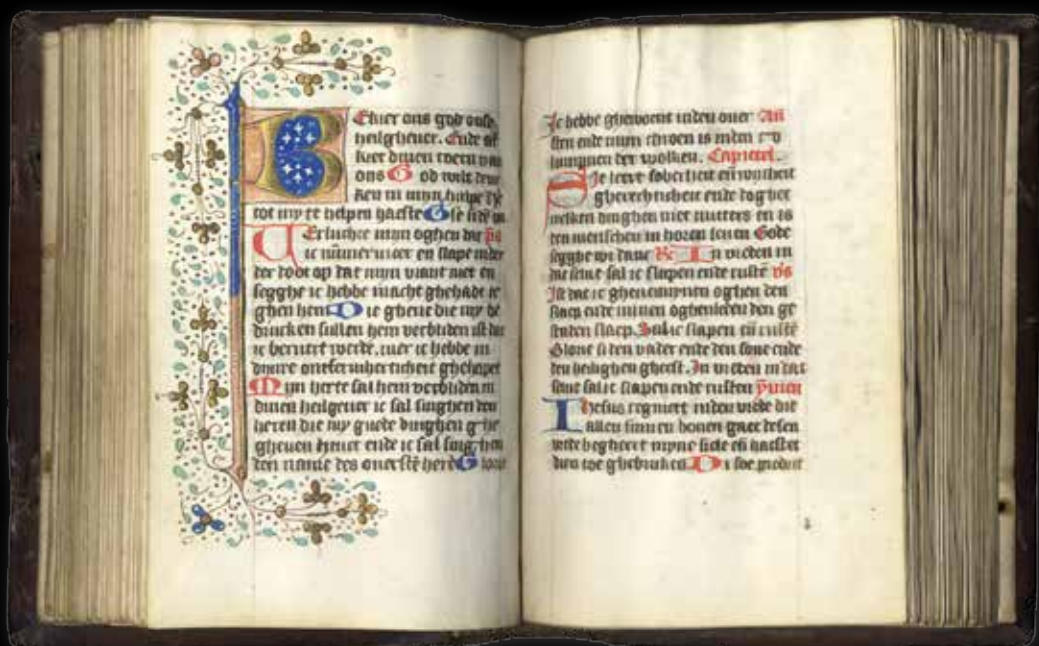 BEkier ons god onse
heilgheuer. Ende af
keer dinen toern van
ons God wilt den
ken in mijn hulpe
tot my te helpen haeste
Erluchte mijn oghen
ic nūmermeer en slape inder
der doot op dat mijn viant niet en
segghe ic hebbe macht ghehadt ie
ghen hem Die ghene die my be
drucken sullen hem verbliden ist dat
ic beruert werde, mer ic hebbe in
dijnre ontfermherticheit ghehopet
Mijn herte sal hem verbliden in
dinen heilgeuer ic sal singhen den
heren die my guede dinghen
gheuen heuet ende ic sal singhen
den name des ouerstē herē Glorie
Ic hebbe ghewoent inden ouer
sten ende mijn throen is inden
der wolken. Capittel.
Sie leert soberheit eñ wijsheit
gherechticheit ende doghet
welken dinghen niet nutters en is
den menschen in horen leuen Gode
segghe wi danc In vreden in
die selue sal ic slapen ende rustē vs
Ist dat ic gheue mynen oghen den
slaep ende minen oghenleden den ge
slaep. Salic slapen eñ rustē
Glorie si den vader ende den sone ende
den heilighen gheest. In vreden in dat
selue sal ic slapen ende rusten
Ihesus
allen sinnen bonen gaet desen
begheert myne siele eñ haestet